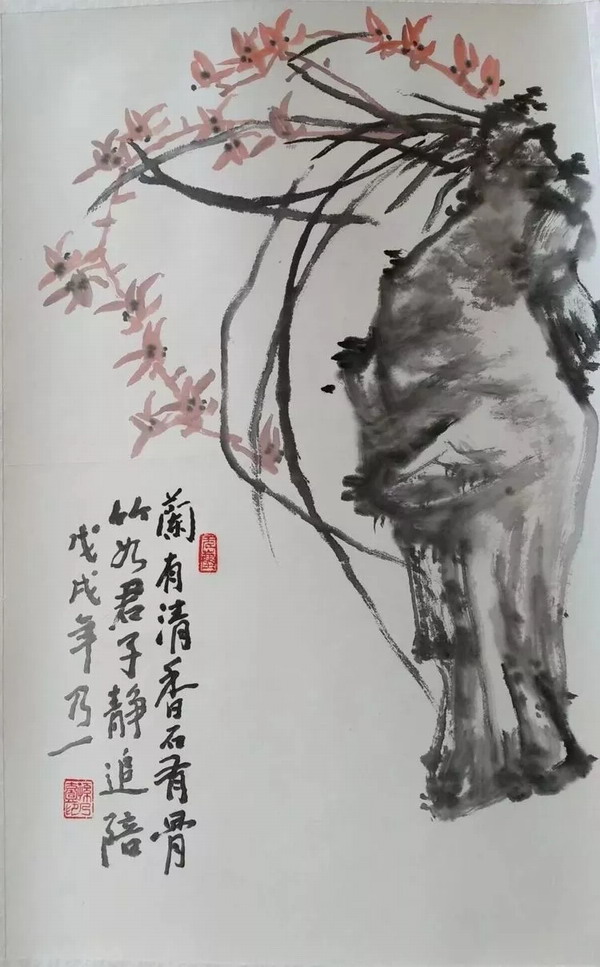 蘭有清香石有骨
竹如君子静追陪
戊戌年乃一